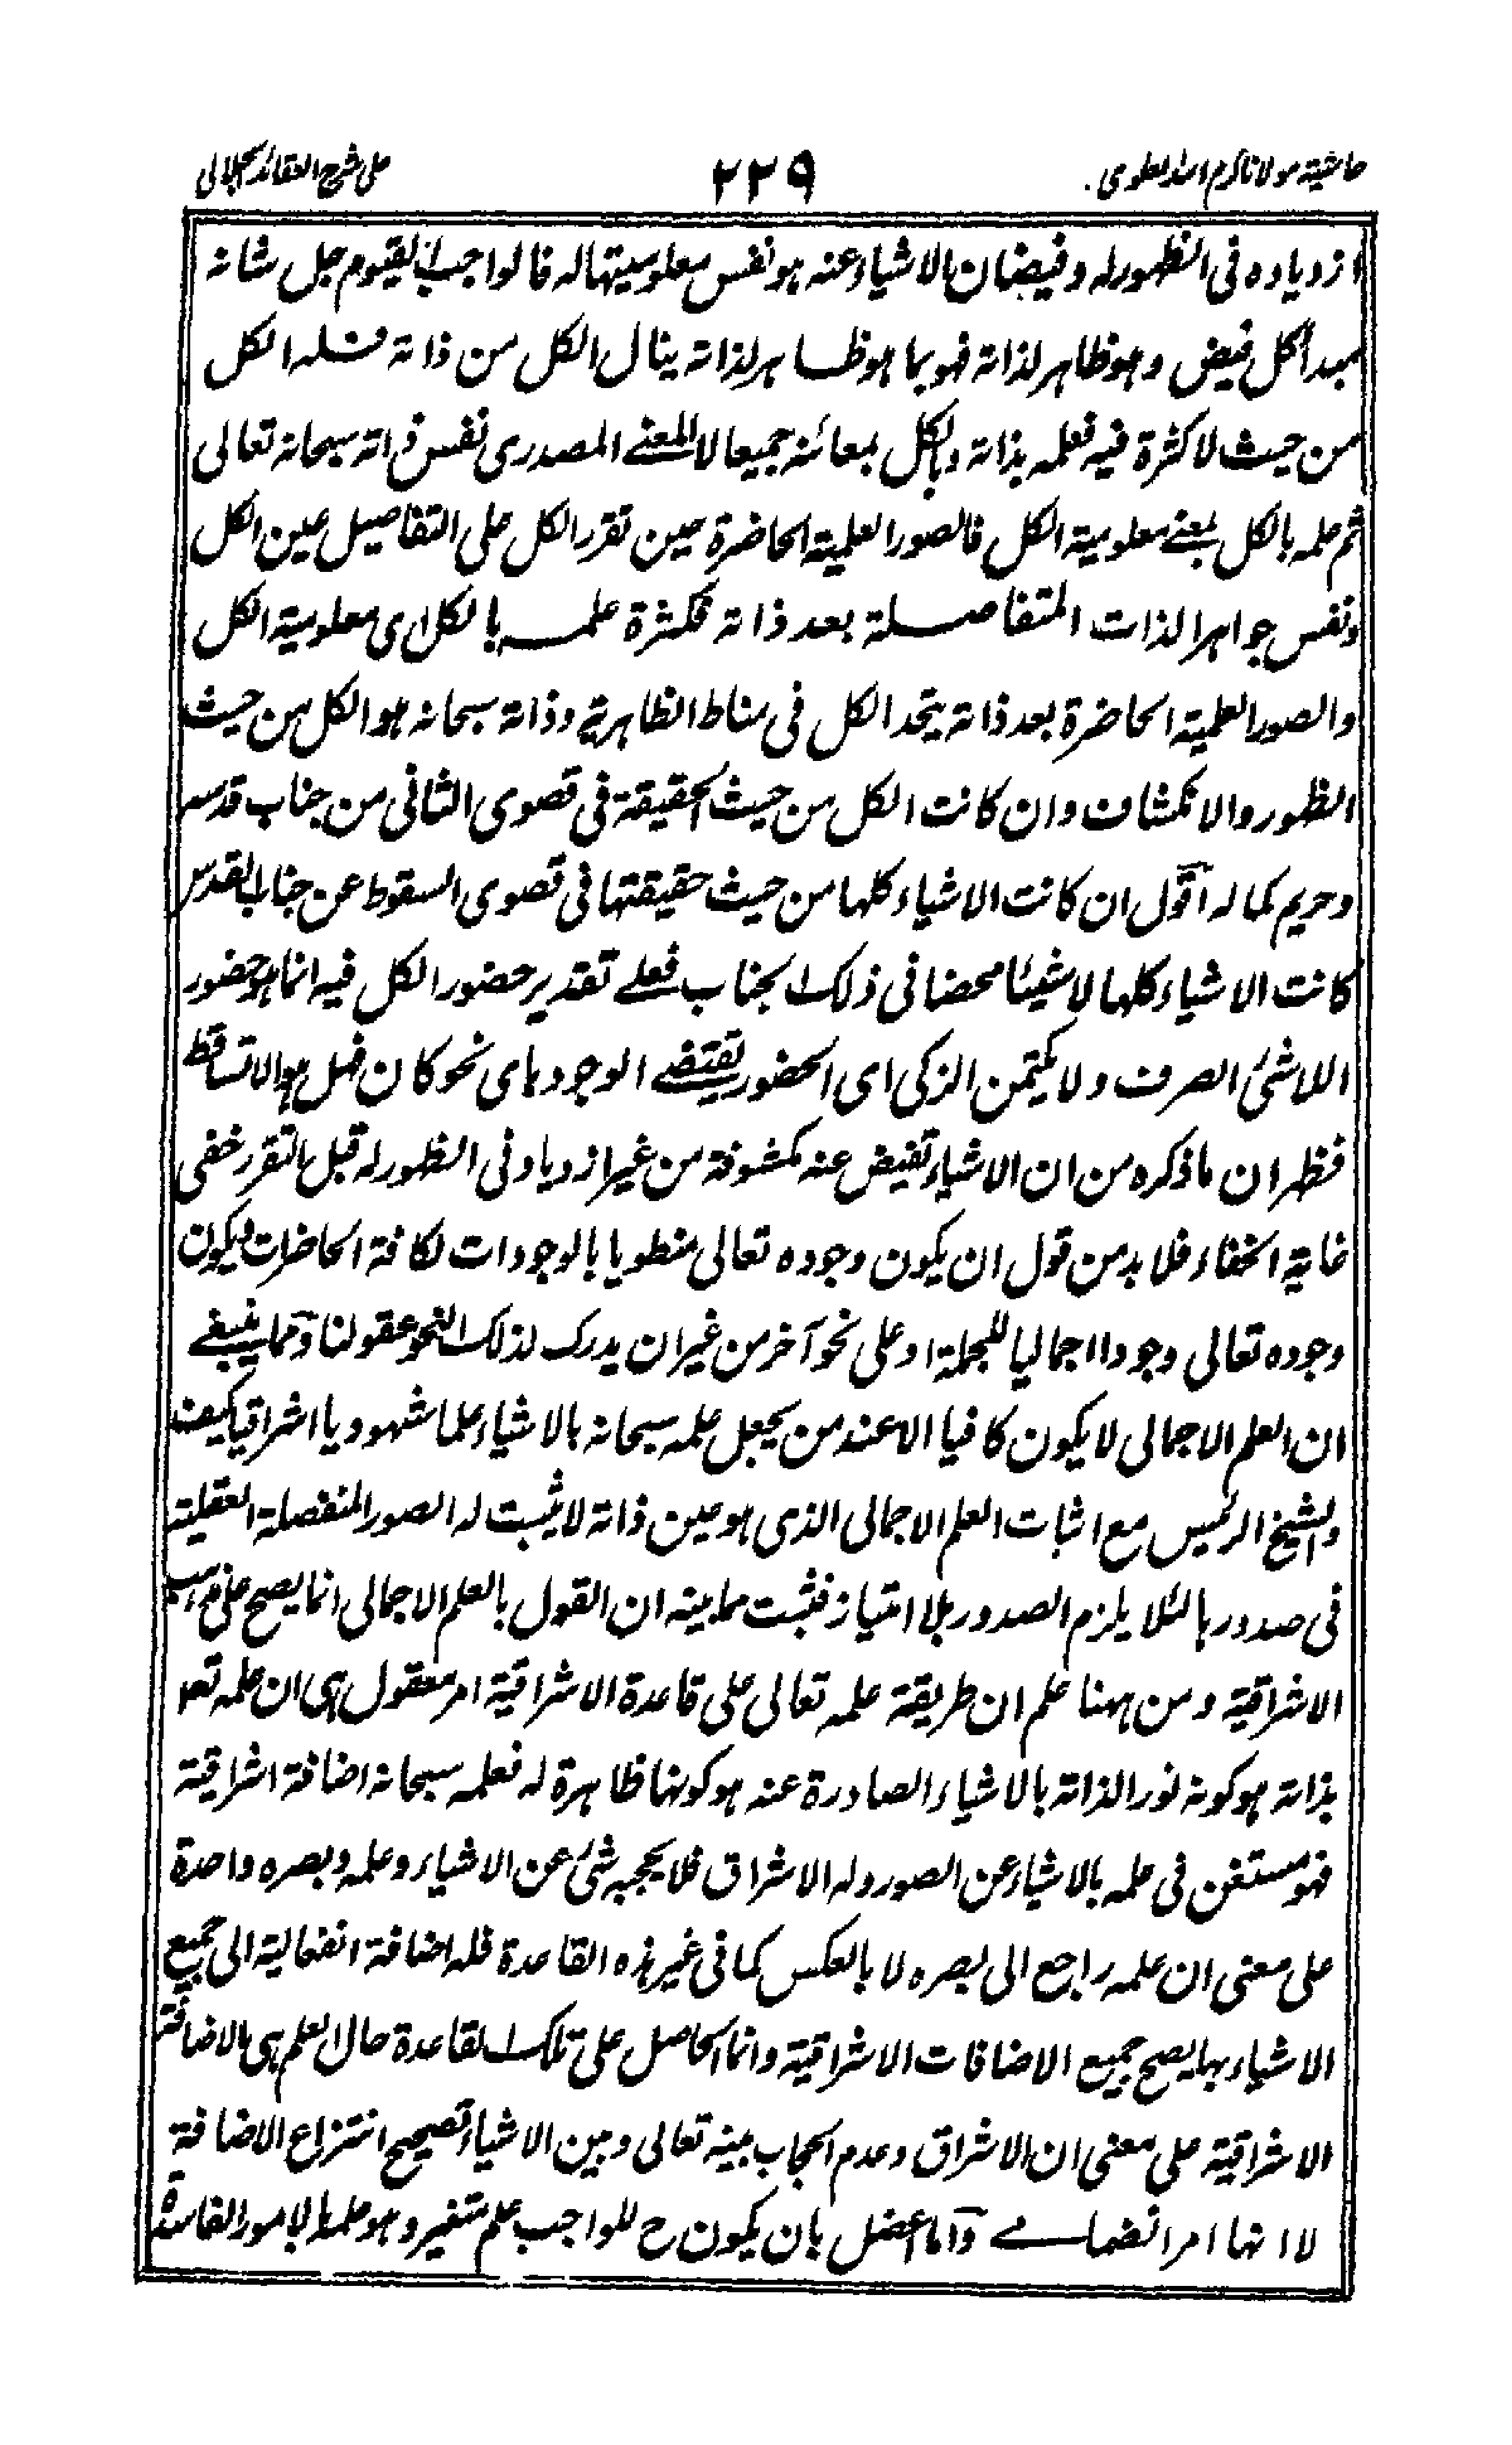 حاشية مولانا كرم الله الدهلوى ٢٢٩ على شرح العقائد الجلالى
ازدياده فى الظهور له وفيضان الاشياء عنه هو نفس معلوميتها له فالواجب القيوم جل شانه
مبدأ كل فيض وهو ظاهر لذاته فهو بما هو ظاهر لذاته ينال الكل من ذاته فله الكل
من حيث لا كثرة فيه فعلمه بذاته وبالكل جميعا لا المعنى المصدرى نفس ذاته سبحانه تعالى
ثم علمه بالكل بمعنى معلومية الكل فالصور العلمية الحاضرة عين تقرر الكل على التفاصيل عين الكل
ونفس جواهر الذات المتفاصلة بعد ذاته فكثرة علمه بالكل اى معلومية الكل
والصور العلمية الحاضرة بعد ذاته يتحد الكل فى مناط الظاهرية وذاته سبحانه هو الكل من حيث
الظهور والانكشاف وان كانت الكل من حيث الحقيقة فى قصوى الثانى من جناب قدسه
وحريم كماله اقول ان كانت الاشياء كلها من حيث حقيقتها فى قصوى السقوط عن جناب القدس
كانت الاشياء كلها لا شيئا محضا فى ذلك الجناب فعلى تقدير حضور الكل فيه انما هو حضور
اللاشئ الصرف ولا يكتمن الزكى اى الحضور يقتضى الوجود باى نحو كان فهل هو الا تساقط
فظهر ان ما ذكره من ان الاشياء تفيض عنه مكشوفة من غير ازدياد فى الظهور له قبل التقرر خفى
غاية الخفاء فلا بد من قول ان يكون وجوده تعالى منطويا بالوجودات لكافة الحاضرات ليكون
وجوده تعالى وجودا اجماليا للجملة او على نحو آخر من غير ان يدرك لذلك النحو عقولنا ومما ينبغى
ان العلم الاجمالى لا يكون كافيا الا عند من يجعل علمه سبحانه بالاشياء علما شهوديا اشراقيا كيف
والشيخ الرئيس مع اثبات العلم الاجمالى الذى هو عين ذاته لا يثبت له الصور المنفصلة العقلية
فى صدورها لئلا يلزم الصدور بلا امتياز فثبت مما بينه ان القول بالعلم الاجمالى انما يصح على مذهب
الاشراقية ومن ههنا علم ان طريقة علمه تعالى على قاعدة الاشراقية امر معقول هى ان علمه تعه
بذاته هو كونه نورا لذاته بالاشياء الصادرة عنه هو كونها ظاهرة له فعلمه سبحانه اضافة اشراقية
فهو مستغن فى علمه بالاشياء عن الصور وله الاشراق فلا يحجبه شئ عن الاشياء وعلمه وبصره واحدة
على معنى ان علمه راجع الى بصره لا بالعكس كما فى غير هذه القاعدة فله اضافة انفعالية الى جميع
الاشياء بها يصح جميع الاضافات الاشراقية وانما الحاصل على تلك القاعدة حال العلم هى الاضافة
الاشراقية على معنى ان الاشراق وعدم الحجاب بينه تعالى وبين الاشياء تصحيح انتزاع الاضافة
لا انها امر انضمامى وآما اعضل بان يكون ح للواجب علم متغير وهو علمه بالامور الفاسدة